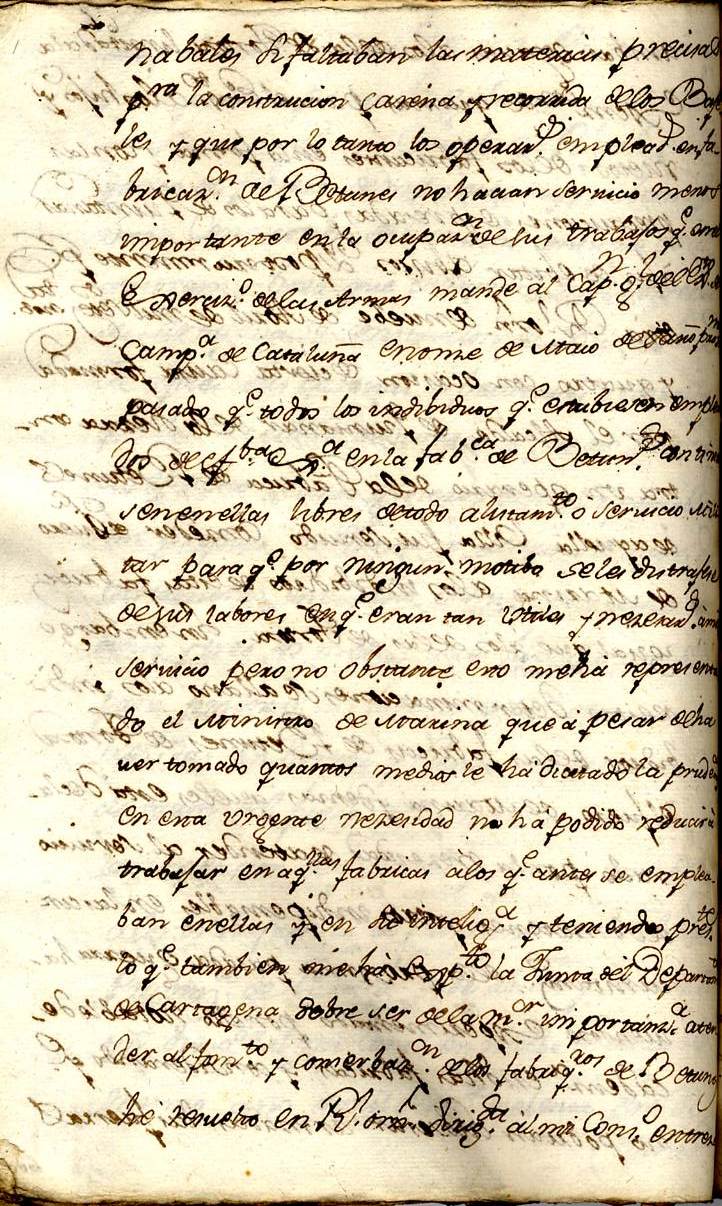 nabales si faltaban las materias precisas
pra la construcion carena y recorrida de los Baje
les y que por lo tanto los operars empleads en fa-
bricazn de Betunes no hacian servicio menos
importante en la ocupazn de sus trabajos qe en el
Exercizo de las Armas mande al Capn Gl del Exto de
Campa de Cataluña en onze de Maio de este año prmo
pasado qe todos los indibiduos qe estubiesen emplea
dos de en la fabca de Betuns continua
sen en ellas libres de todo alistamto o servicio Mili
tar para qe por ningun motibo se les distraiese
de sus labores en qe eran tan utiles y nezesars à mi
servicio pero no obstante esto me ha representa
do el Ministro de Marina que à pesar de ha
ver tomado quantos medios le ha dictado la pruda
en esta urgente nezesidad no ha podido reducir à
trabajar en aqllas fabricas à los qe antes se emplea-
ban en ellas y en su inteliga y teniendo preste
lo qe tambien me ha expto la Junta del Departamto
de Cartagena sobre ser de la mor importanzia aten
der al fomto y conserbazn de los fabriqros de Betunes
he resuelto en Rl orn dirigda al mi Conso en trez